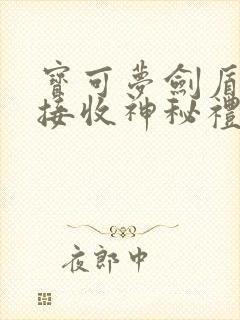 寶可夢劍盾
接收神秘禮
夜郎中